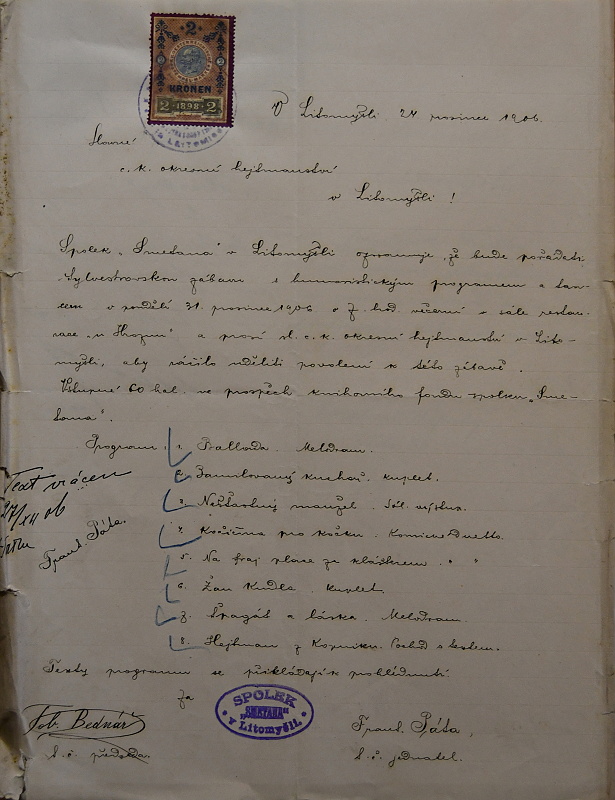 2
KRONEN
2 1898 2
V Litomyšli 24 prosince 1906.
Slavné
c. k. okresní hejtmanství
v Litomyšli!
Spolek „Smetana" v Litomyšli oznamuje, že bude pořádati
Sylvestrovskou zábavu s humoristickým programem a tan-
cem v pondělí 31. prosince 1906 o 7. hod. večerní v sále restau-
race „u Hroznu" a prosí sl. c. k. okresní hejtmanství v Lito-
myšli, aby ráčilo uděliti povolení k této zábavě.
Vstupné 60 hal. ve prospěch knihovního fondu spolku „Sme-
tana".
Program: 1. Ballada. Melodram.
2. Zamilovaný kuchař. kuplet.
3. Nešťastný manžel. Sól. výstup.
4. Kočičina pro kočku. Komické Duetto.
5. Na fraj place za klášterem. " "
6. Žan Kudla. kuplet.
7. Špagát a láska. Melodram.
8. Hejtman z Kopníku. Pochod s textem.
Text vrácen
27/XII 06
Frant. Páta.
Texty programu se přikládají k nahlédnutí.
Za
SPOLEK
„SMETANA"
v Litomyšli.
Tob. Bednář
t. č. předseda.
Frant. Páta,
t. č. jednatel.